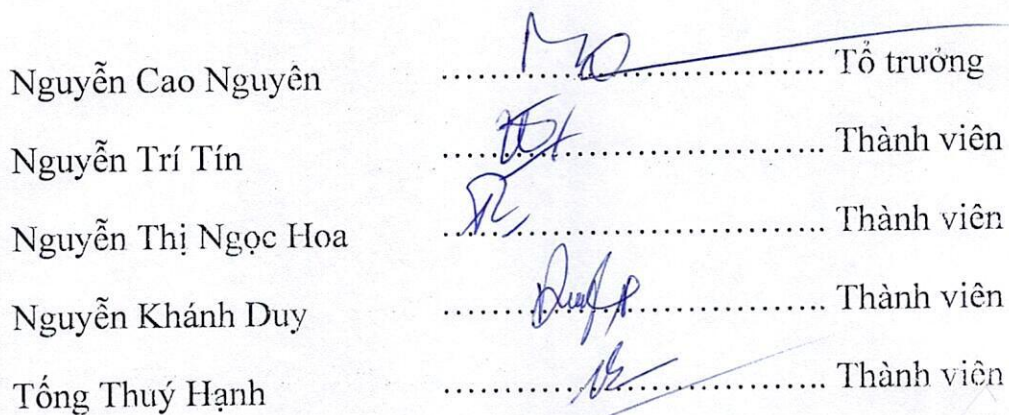 Nguyễn Cao Nguyên ........................ Tổ trưởng
Nguyễn Trí Tín ........................ Thành viên
Nguyễn Thị Ngọc Hoa ........................ Thành viên
Nguyễn Khánh Duy ........................ Thành viên
Tống Thuý Hạnh ........................ Thành viên